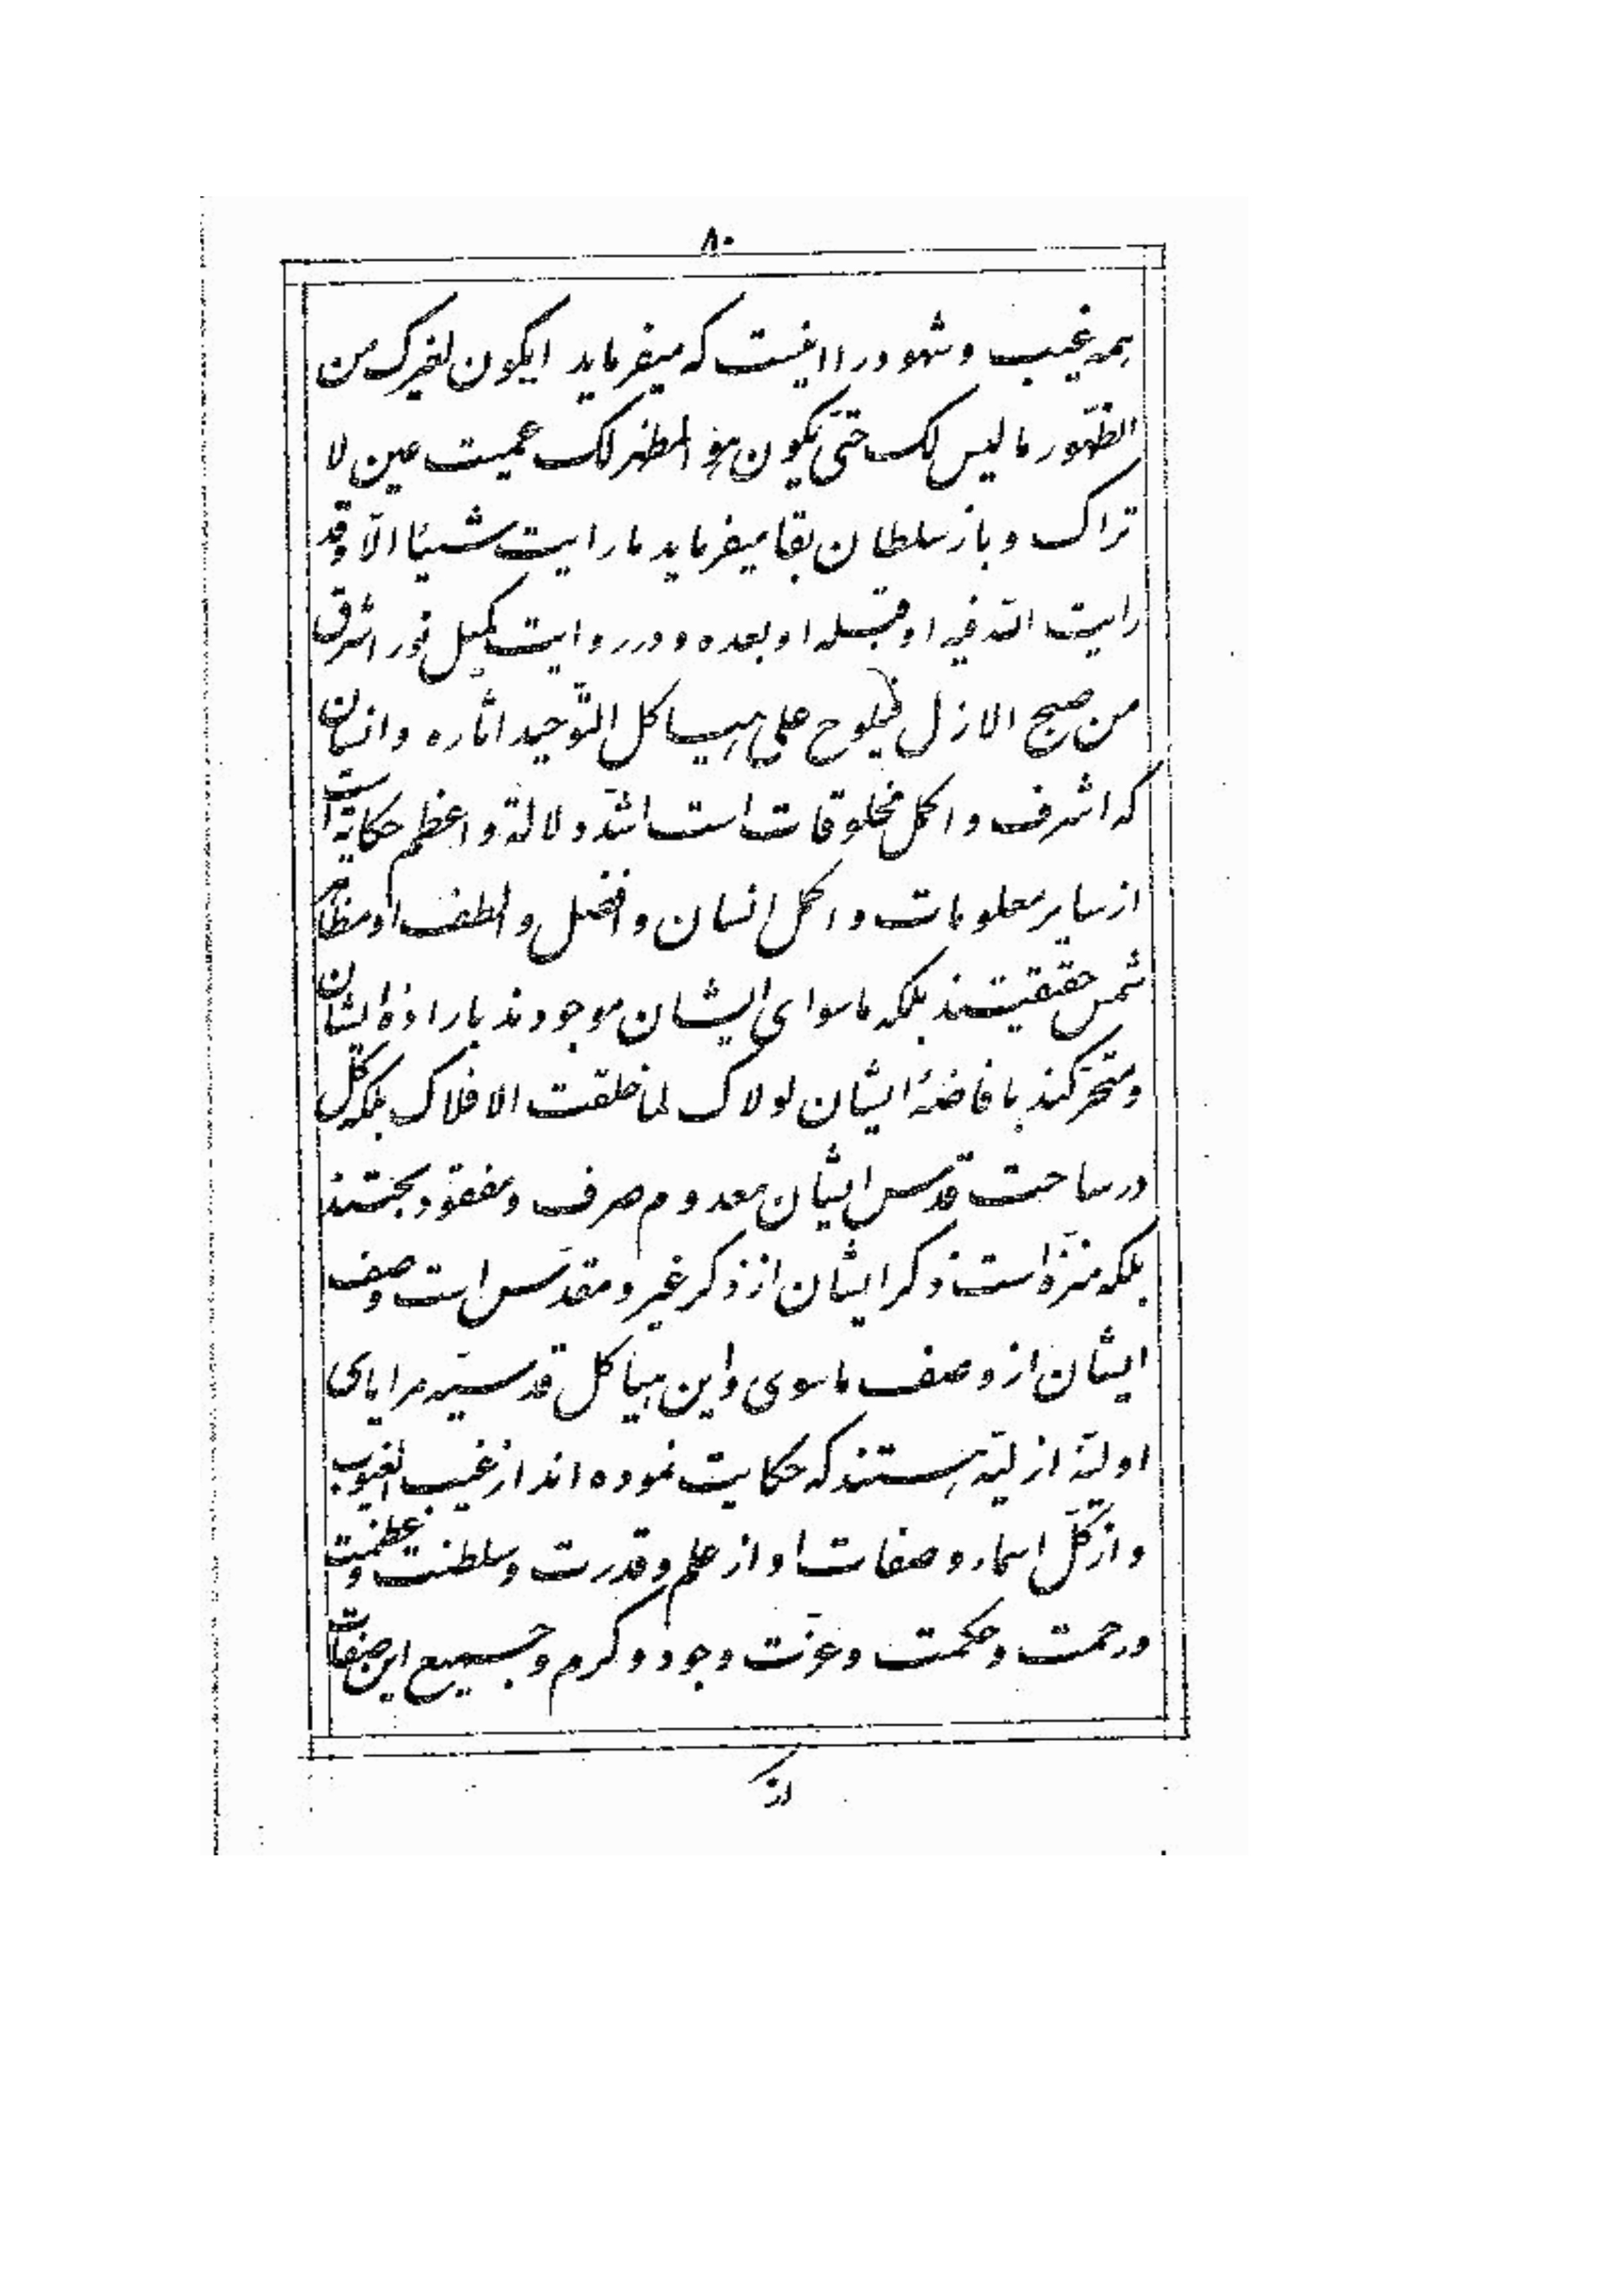 ۸۰
همه غیب و شهود را اینست که میفرماید ایکون لغیرک من
الظّهور ما لیس لک حتّی یکون هو المظهر لک عمیت عین لا
تراک و باز سلطان بقا میفرماید ما رایت شیئا الّا وقد
رایت اللّه فیه او قبله او بعده و در روایت کمیل نور اشرق
من صبح الازل فیلوح علی هیاکل التّوحید اثاره و انسان
که اشرف و اکمل مخلوقات است اشدّ دلالة و اعظم حکایة است
از سایر معلومات و اکمل انسان و افضل و الطف او مظاهر
شمس حقیقتند بلکه ماسوای ایشان موجودند باراده ایشان
و متحرّکند بافاضهٔ ایشان لولاک لما خلقت الافلاک بلکه کلّ
در ساحت قدس ایشان معدوم صرف و مفقود بحتند
بلکه منزّه است ذکر ایشان از ذکر غیر و مقدّس است وصف
ایشان از وصف ماسوی و این هیاکل قدسیّه مرایای
اولیّهٔ ازلیّه هستند که حکایت نموده اند از غیب الغیوب
و از کلّ اسماء و صفات او از علم و قدرت و سلطنت و عظمت
و رحمت و حکمت و عزّت وجود و کرم و جمیع این صفات
از